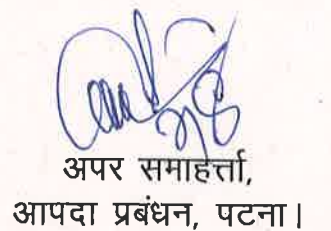 अपर समाहर्त्ता,
आपदा प्रबंधन, पटना।